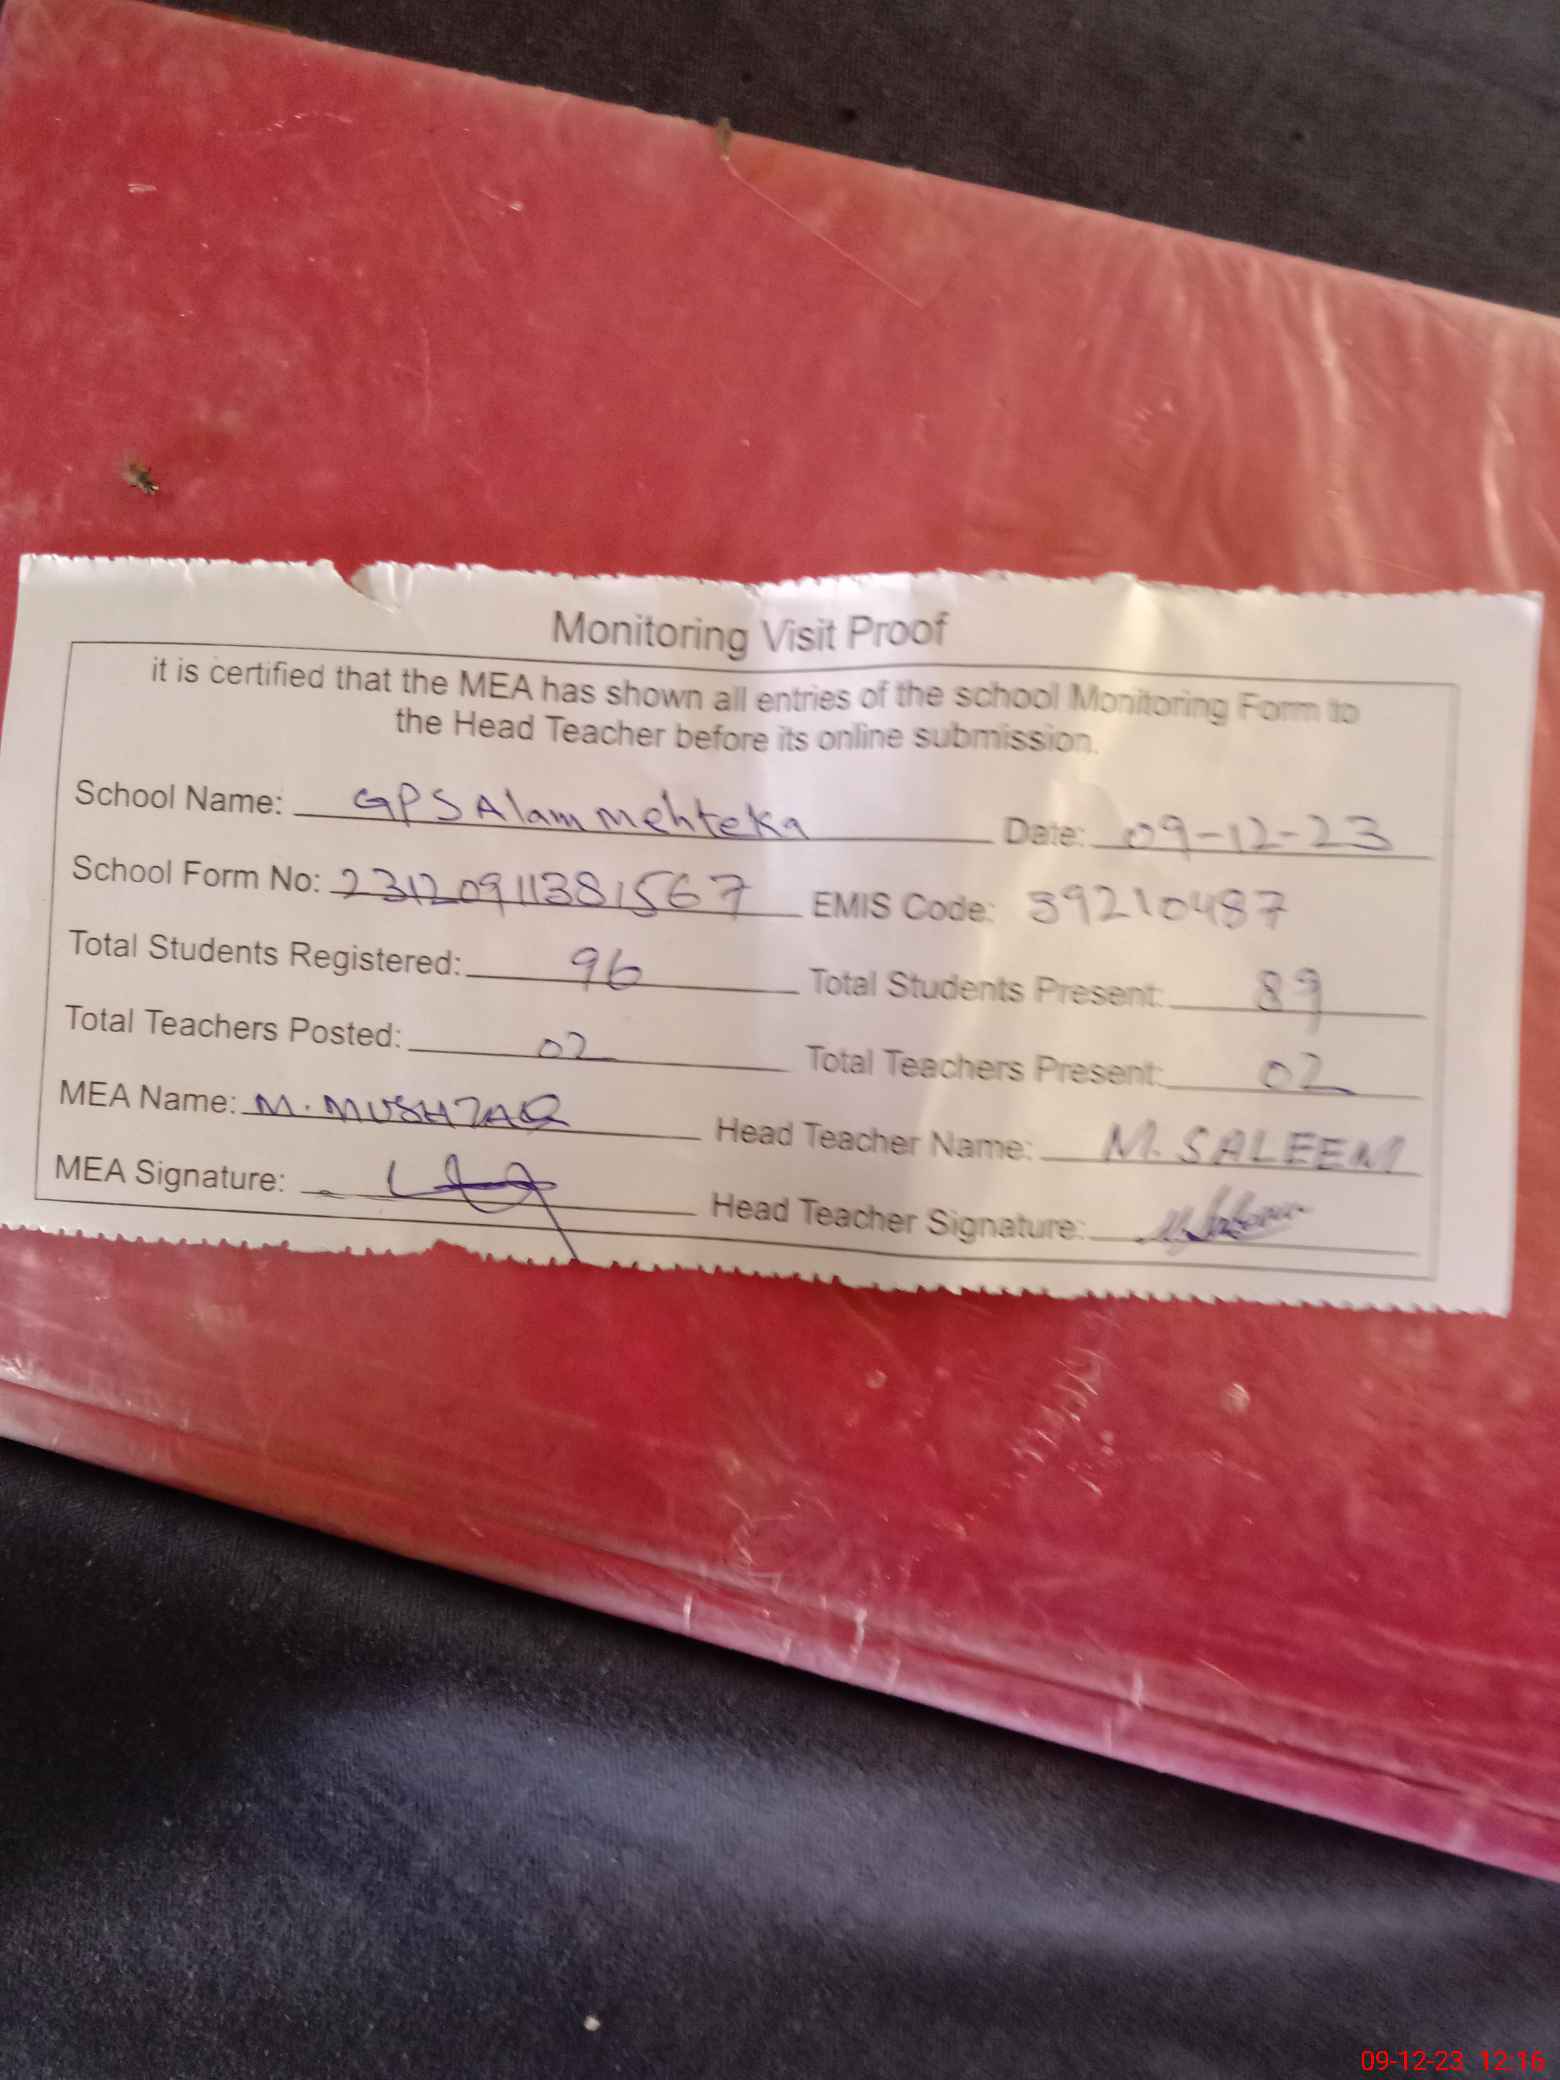 Monitoring Visit Proof
it is certified that the MEA has shown all entries of the school Monitoring Form to
the Head Teacher before its online submission.
School Name: GPS Alam mehteka Date: 09-12-23
School Form No: 23120911381567 EMIS Code: 39210487
Total Students Registered: 96 Total Students Present: 89
Total Teachers Posted: 02 Total Teachers Present: 02
MEA Name: M. MUSHTAQ Head Teacher Name: M. SALEEM
MEA Signature: Head Teacher Signature:
09-12-23 12:16